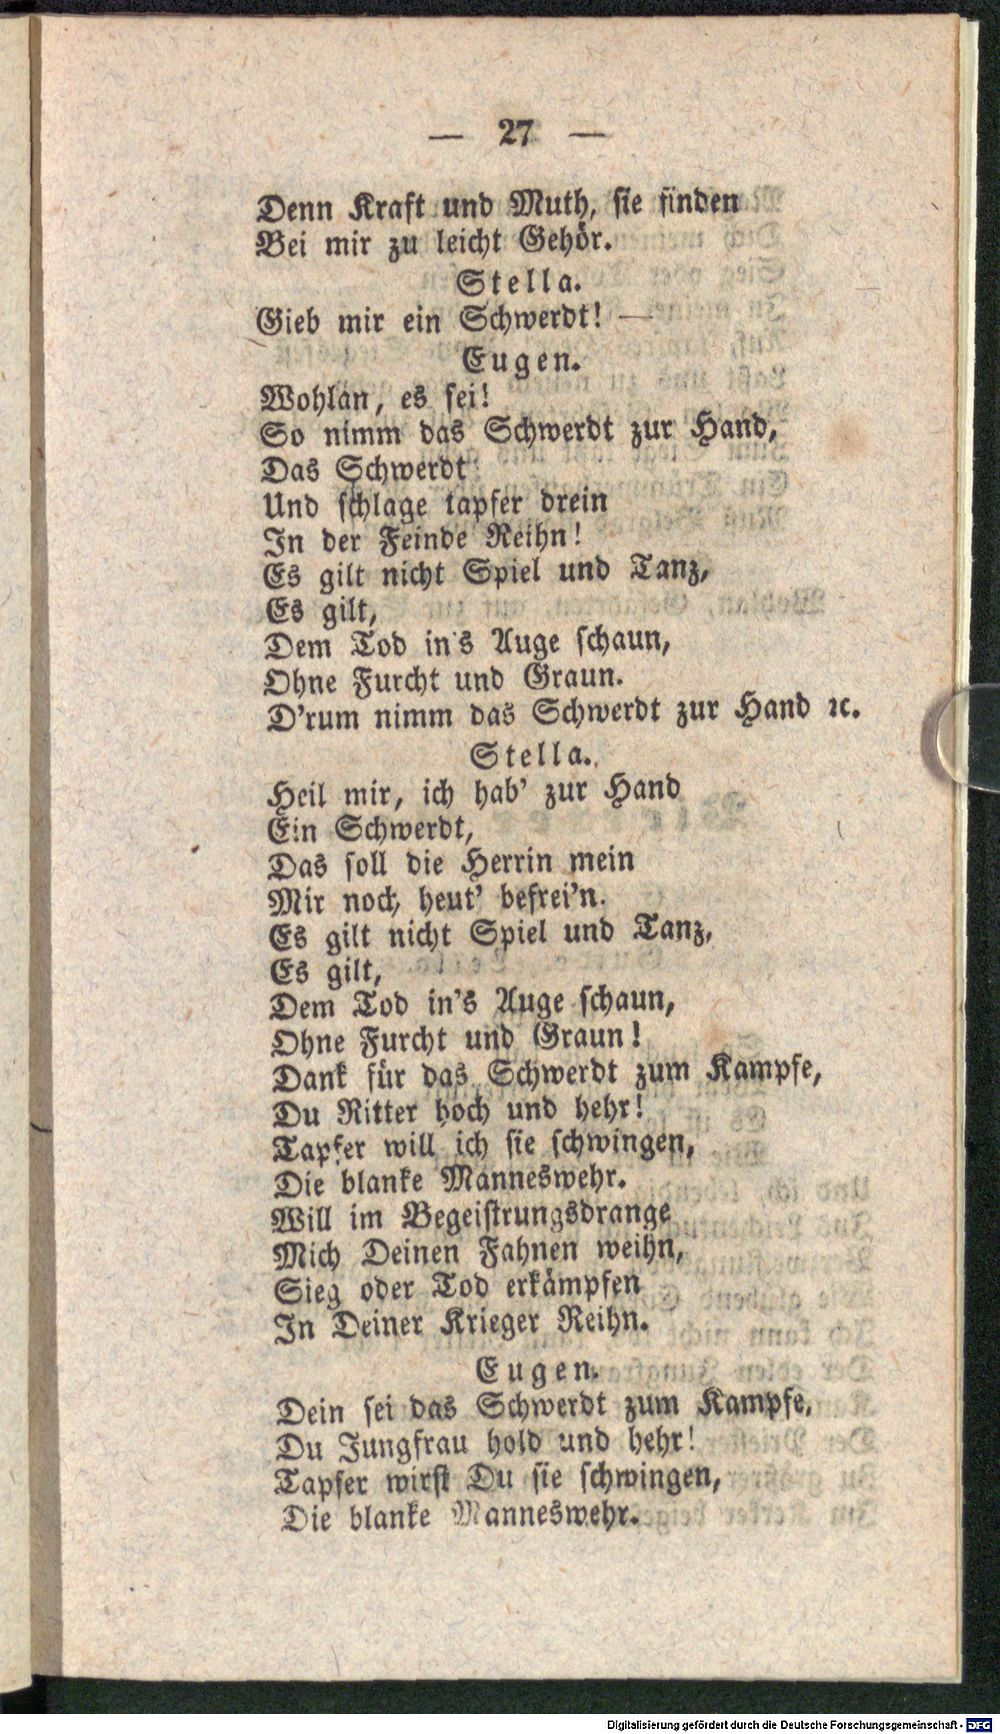 — 27 —
Denn Kraft und Muth, sie finden
Bei mir zu leicht Gehör.
Stella.
Gieb mir ein Schwerdt! —
Eugen.
Wohlan, es sei!
So nimm das Schwerdt zur Hand,
Das Schwerdt
Und schlage tapfer drein
In der Feinde Reihn!
Es gilt nicht Spiel und Tanz,
Es gilt,
Dem Tod in's Auge schaun,
Ohne Furcht und Graun.
D'rum nimm das Schwerdt zur Hand ꝛc.
Stella.
Heil mir, ich hab' zur Hand
Ein Schwerdt,
Das soll die Herrin mein
Mir noch heut' befrei'n.
Es gilt nicht Spiel und Tanz,
Es gilt,
Dem Tod in's Auge schaun,
Ohne Furcht und Graun!
Dank für das Schwerdt zum Kampfe,
Du Ritter hoch und hehr!
Tapfer will ich sie schwingen,
Die blanke Manneswehr.
Will im Begeistrungsdrange
Mich Deinen Fahnen weihn,
Sieg oder Tod erkämpfen
In Deiner Krieger Reihn.
Eugen.
Dein sei das Schwerdt zum Kampfe,
Du Jungfrau hold und hehr!
Tapfer wirst Du sie schwingen,
Die blanke Manneswehr.
Digitalisierung gefördert durch die Deutsche Forschungsgemeinschaft - DFG